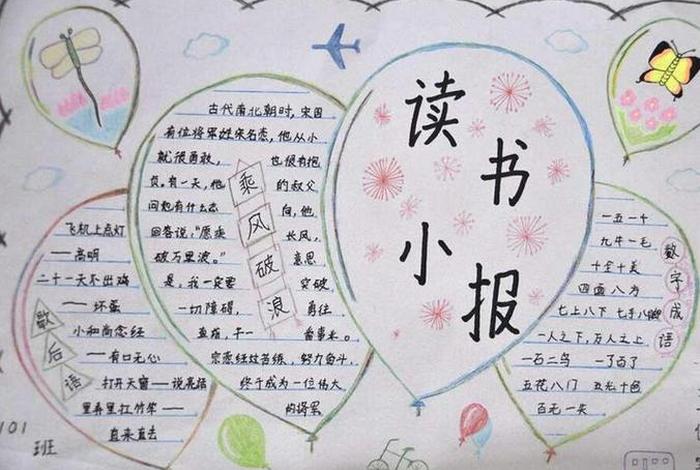 读书小报
乘风破浪
古代南北朝时,宋国
有位将军姓宗名悫,他从小
就很勇敢,也很有抱
负。有一天,他的叔父
问他有什么志向,他
回答说:"愿乘长风,
破万里浪。"意思
是,我一定要突破
一切障碍,勇往
直前,干一番事业。
宗悫经过苦练,努力奋斗,
终于成为一位伟大
的将军
歇后语
飞机上点灯
——高明
二十一天不出鸡
——坏蛋
小和尚念经
——有口无心
打开天窗——说亮话
里弄里扛竹竿——
直来直去
数字成语
一五一十
九牛一毛
十全十美
四面八方
七上八下 七手八脚
一人之下,万人之上
一石二鸟 一了百了
五花八门 五光十色
百无一失
101
班